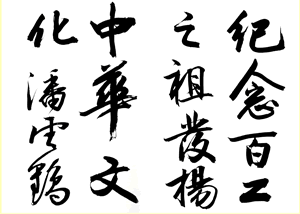 纪念百工
之祖發揚
中華文
化潘雲鶴